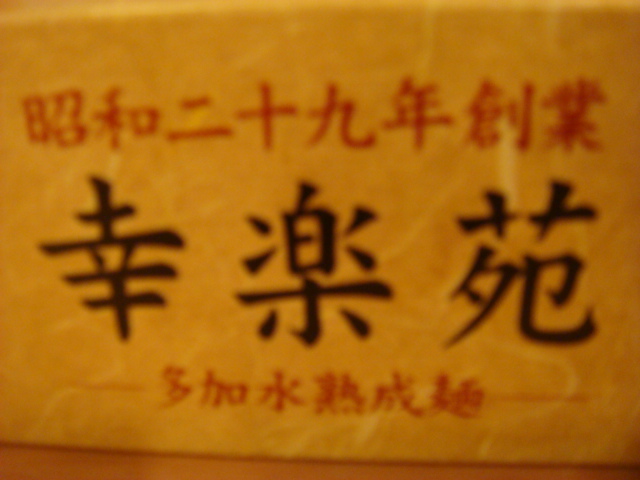 昭和二十九年創業
幸楽苑
多加水熟成麺